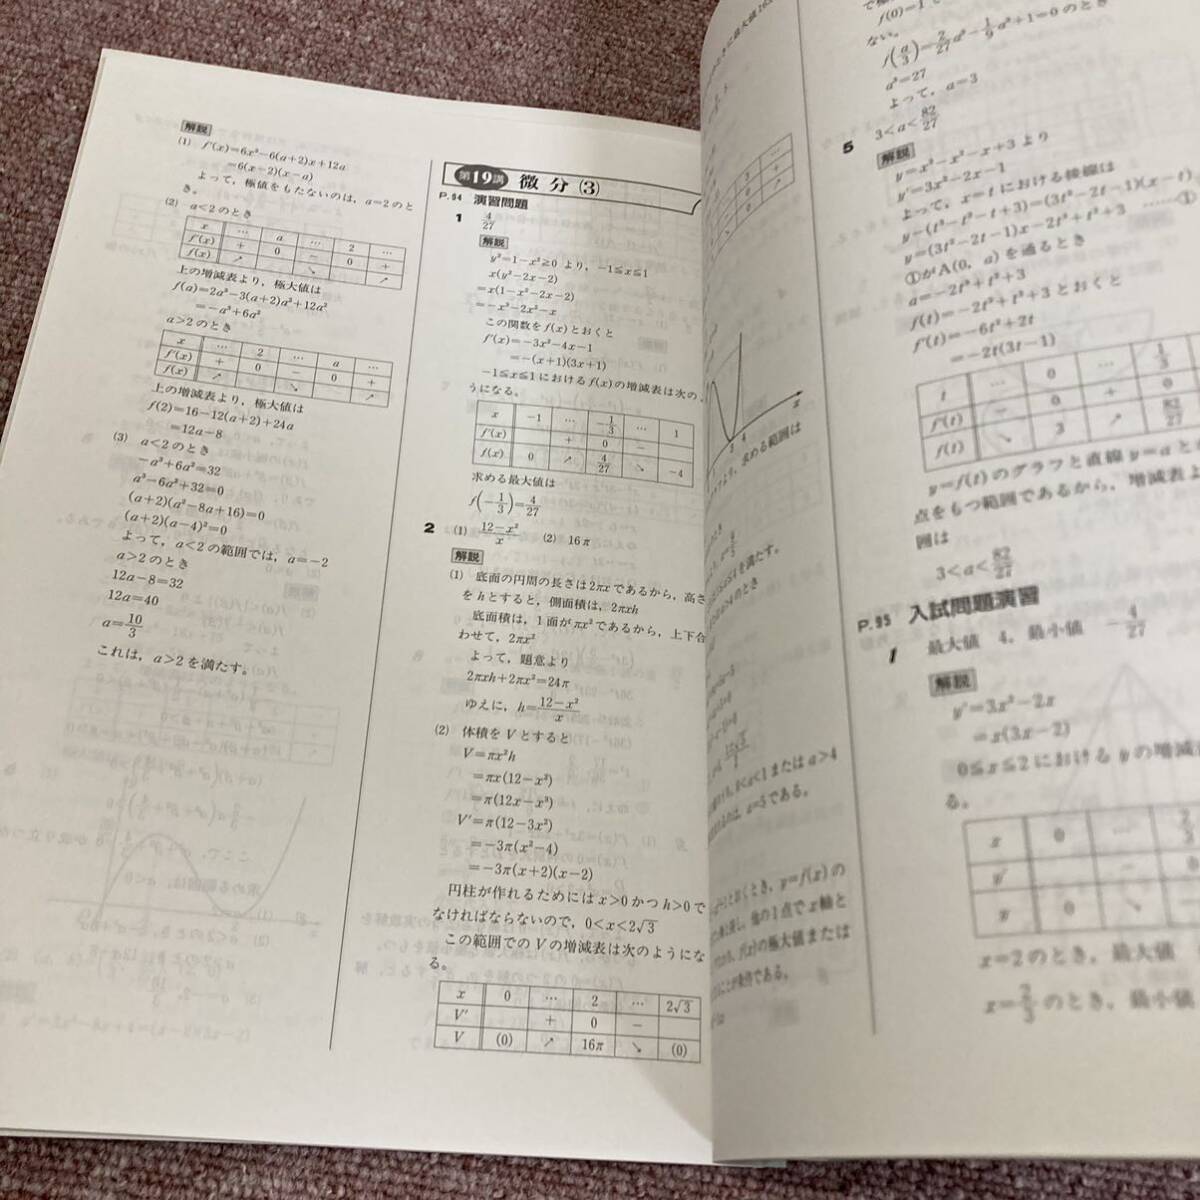 解説
(1) f′(x)=6x²−6(a+2)x+12a
=6(x−2)(x−a)
よって，極値をもたないのは，a=2のと
き。
(2) a<2のとき
x … a … 2 …
f′(x) + 0 − 0 +
f(x) ↗ ↘ ↗
上の増減表より，極大値は
f(a)=2a³−3(a+2)a²+12a²
=−a³+6a²
a>2のとき
x … 2 … a …
f′(x) + 0 − 0 +
f(x) ↗ ↘ ↗
上の増減表より，極大値は
f(2)=16−12(a+2)+24a
=12a−8
(3) a<2のとき
−a³+6a²=32
a³−6a²+32=0
(a+2)(a²−8a+16)=0
(a+2)(a−4)²=0
よって，a<2の範囲では，a=−2
a>2のとき
12a−8=32
12a=40
a=10/3
これは，a>2を満たす。
第19講 微分(3)
P.94 演習問題
1 4/27
解説
y²=1−x²≧0 より，−1≦x≦1
x(y²−2x−2)
=x(1−x²−2x−2)
=−x³−2x²−x
この関数をf(x)とおくと
f′(x)=−3x²−4x−1
=−(x+1)(3x+1)
−1≦x≦1におけるf(x)の増減表は次の
ようになる。
x −1 … −1/3 … 1
f′(x) + 0 −
f(x) 0 ↗ 4/27 ↘ −4
求める最大値は
f(−1/3)=4/27
2 (1) 12−x²/x (2) 16π
解説
(1) 底面の円周の長さは2πxであるから，高さ
をhとすると，側面積は，2πxh
底面積は，1面がπx²であるから，上下合
わせて，2πx²
よって，題意より
2πxh+2πx²=24π
ゆえに，h=12−x²/x
(2) 体積をVとすると
V=πx²h
=πx(12−x²)
=π(12x−x³)
V′=π(12−3x²)
=−3π(x²−4)
=−3π(x+2)(x−2)
円柱が作れるためにはx>0かつh>0で
なければならないので，0<x<2√3
この範囲でのVの増減表は次のようにな
る。
x 0 … 2 … 2√3
V′ + 0 −
V (0) ↗ 16π ↘ (0)
f(0)=1
ない。
f(a/3)=2/27a³−1/9a³+1=0のとき
a³=27
よって，a=3
5 3<a<82/27
解説
y=x³−x²−x+3 より
y′=3x²−2x−1
よって，x=tにおける接線は
y−(t³−t²−t+3)=(3t²−2t−1)(x−t)
y=(3t²−2t−1)x−2t³+t²+3 ……①
①がA(0，a)を通るとき
a=−2t³+t²+3
f(t)=−2t³+t²+3とおくと
f′(t)=−6t²+2t
=−2t(3t−1)
t … 0 … 1/3
f′(t) − 0 + 0
f(t) ↘ 3 ↗ 82/27
y=f(t)のグラフと直線y=aと
点をもつ範囲であるから，増減表よ
囲は
3<a<82/27
P.95 入試問題演習
1 最大値 4，最小値 −4/27
解説
y′=3x²−2x
=x(3x−2)
0≦x≦2におけるyの増減表
る。
x 0 … 2/3
y′ − 0
y 0 ↘
x=2のとき，最大値
x=2/3のとき，最小値